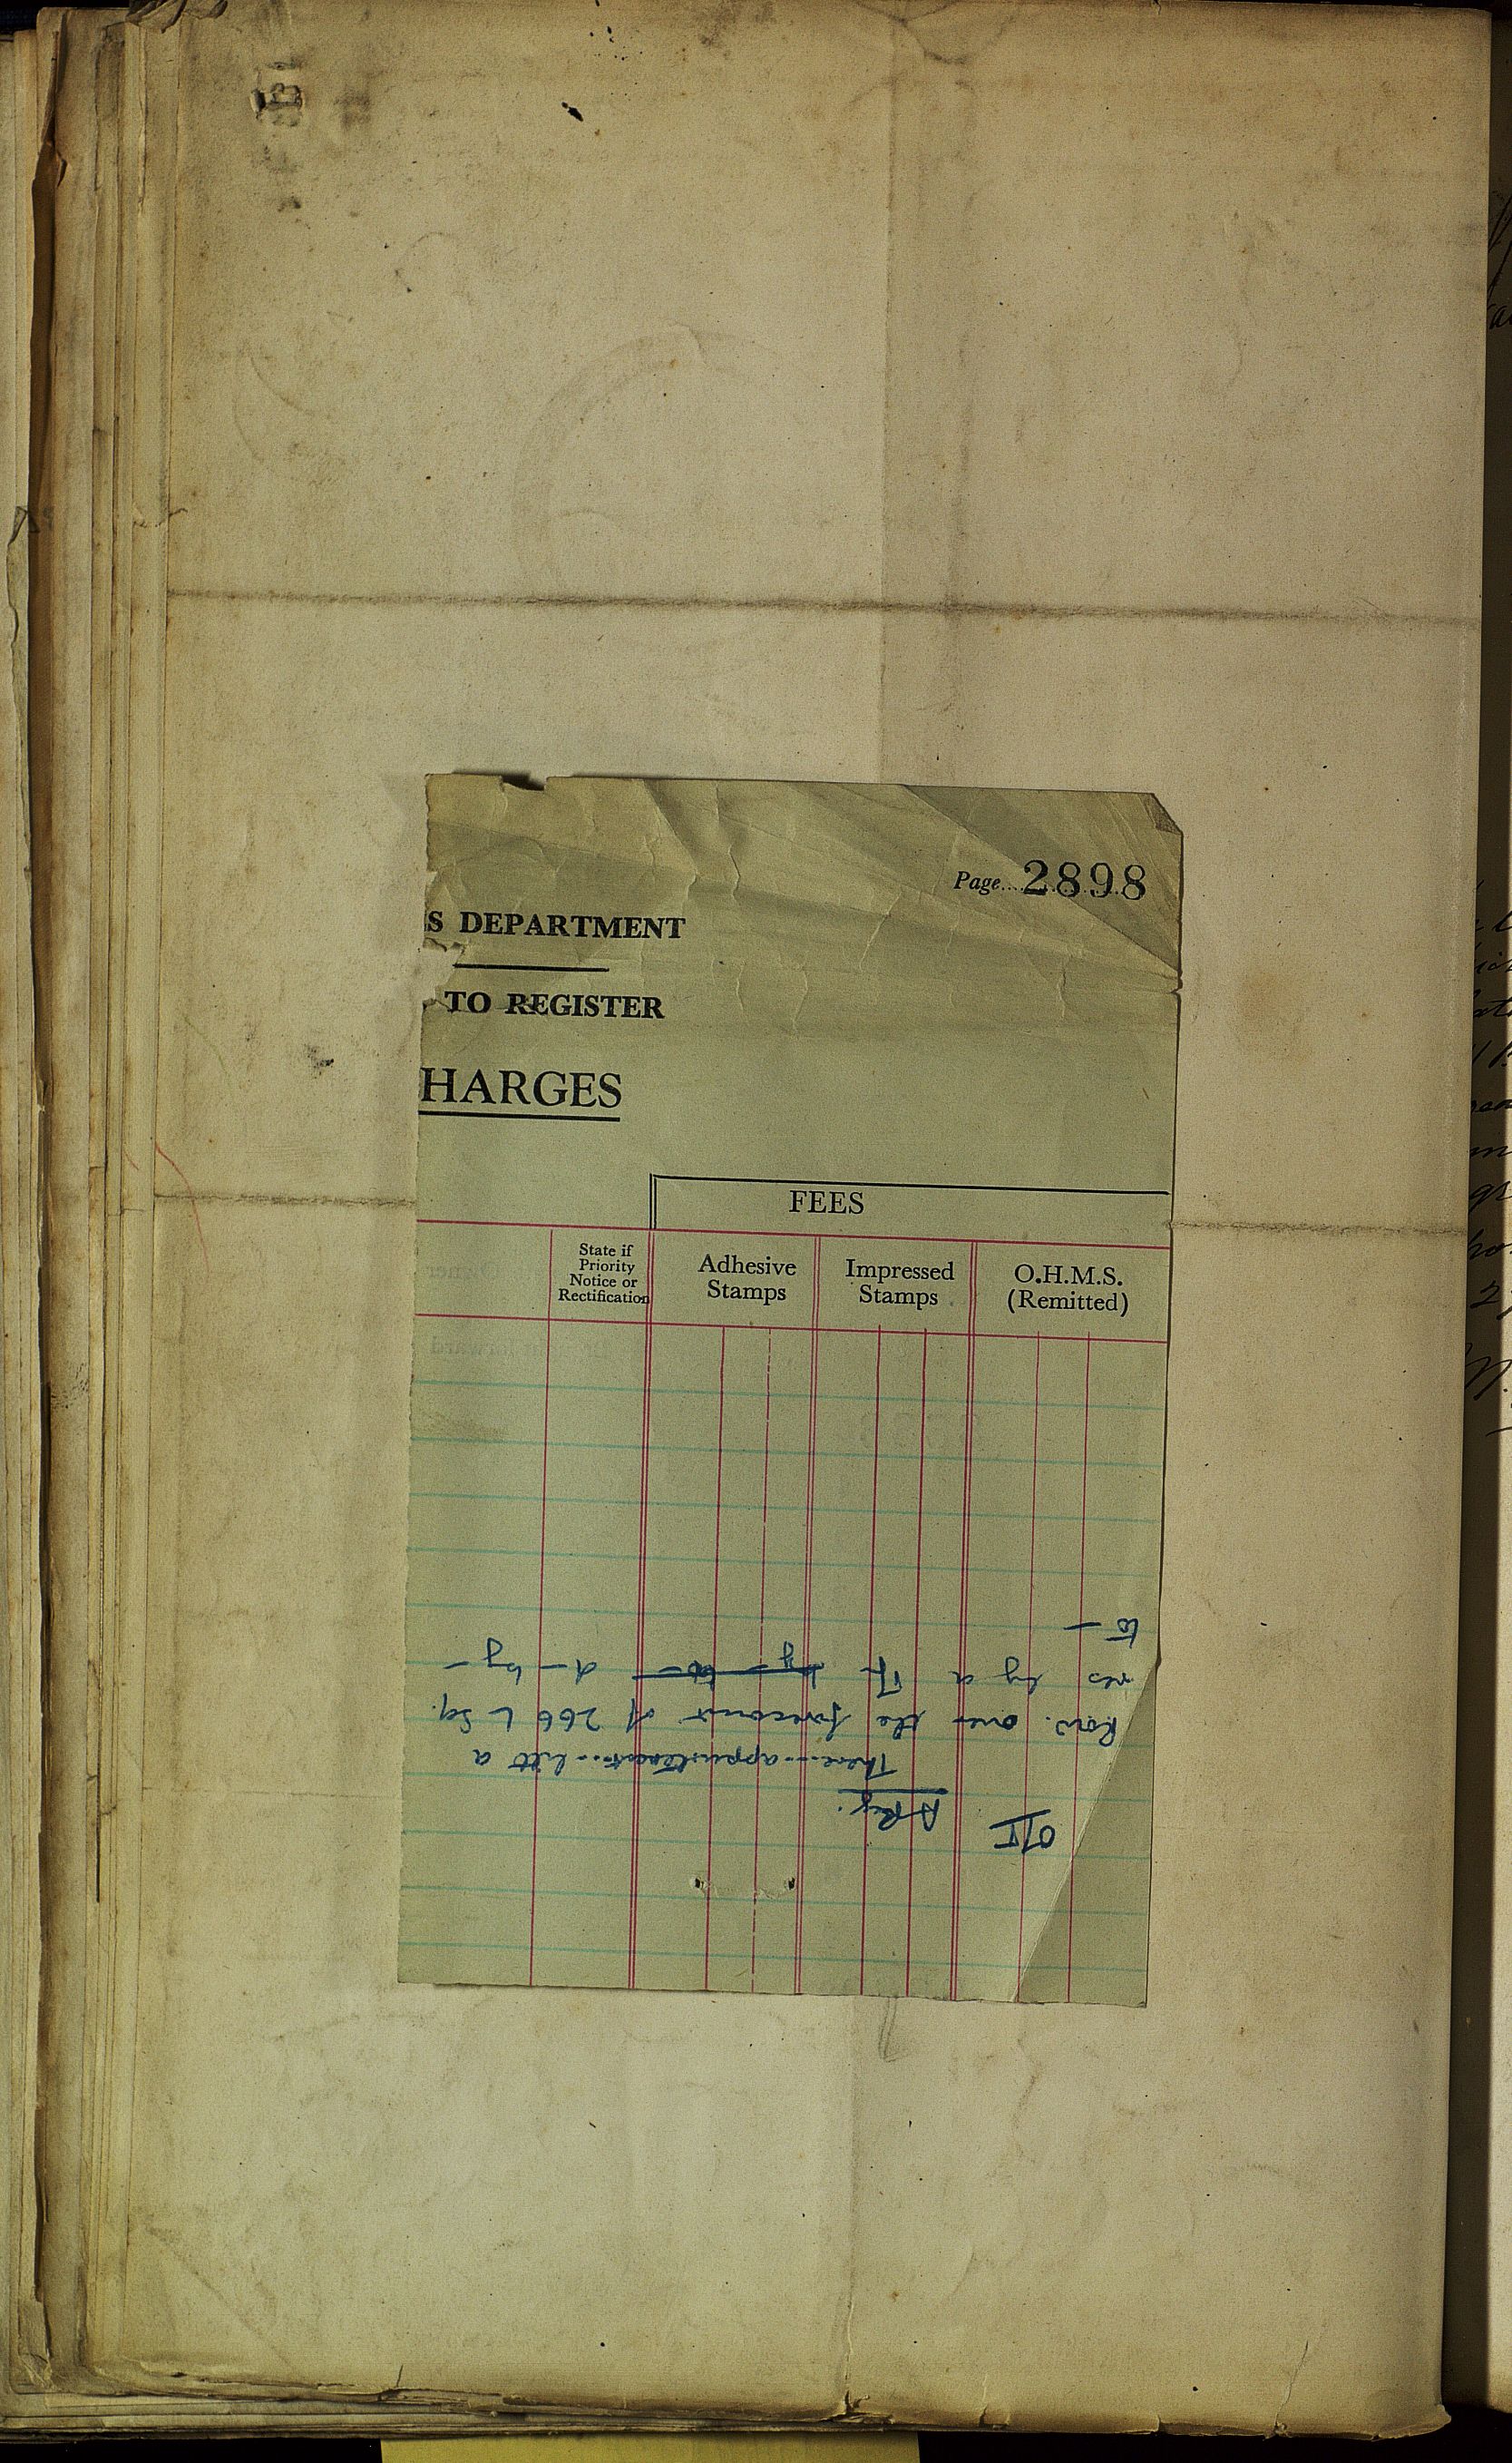 Page 2898
S DEPARTMENT
TO REGISTER
HARGES
FEES
State if
Priority
Notice or
Rectification
Adhesive
Stamps
Impressed
Stamps
O.H.M.S.
(Remitted)
O/T
A Reg.
There ... appurtenant ... litt a
Row. over the forecourt of 266 L Sq.
res by a Tf by — to — d — by —
to —